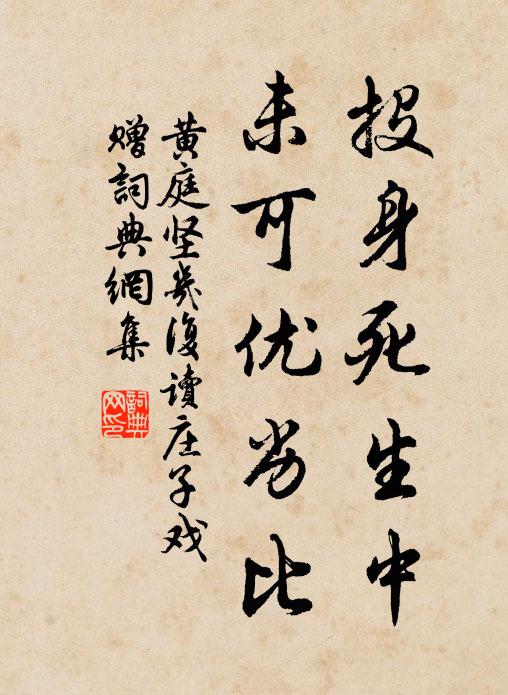 投身死生中
未可优劣比
黄庭坚几复读庄子戏
赠词典網集
詞典网印